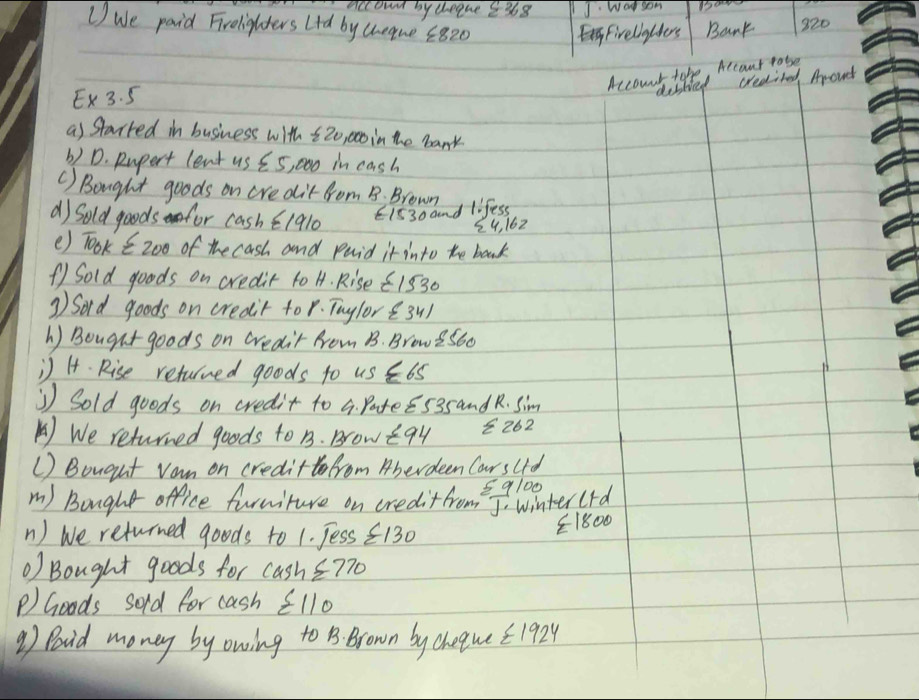 account by cheque £368 J. Watson
L) We paid Firelighters Ltd by cheque £820 Firelighters Bank 820
Account to be debited Accant to be credited Amount
Ex 3.5
a) Started in business with £20,000 in the bank
b) D. Rupert lent us £5,000 in cash
c) Bought goods on credit from B. Brown
£1530 and I. Jess
£4,162
d) Sold goods for cash £1910
e) Took £200 of the cash and paid it into the bank
f) Sold goods on credit to H. Rise £1530
g) Sord goods on credit to P. Taylor £341
h) Bought goods on credit from B. Brow £560
i) H. Rise returned goods to us £65
j) Sold goods on credit to G. Pate £535 and R. Sim
£262
k) We returned goods to B. Brow £94
L) Bought van on credit from Aberdeen Cars Ltd
£9100
m) Bought office furniture on credit from J. Winter Ltd
£1800
n) We returned goods to I. Jess £130
o) Bought goods for cash £770
P) Goods sold for cash £110
q) Paid money by owing to B. Brown by cheque £1924